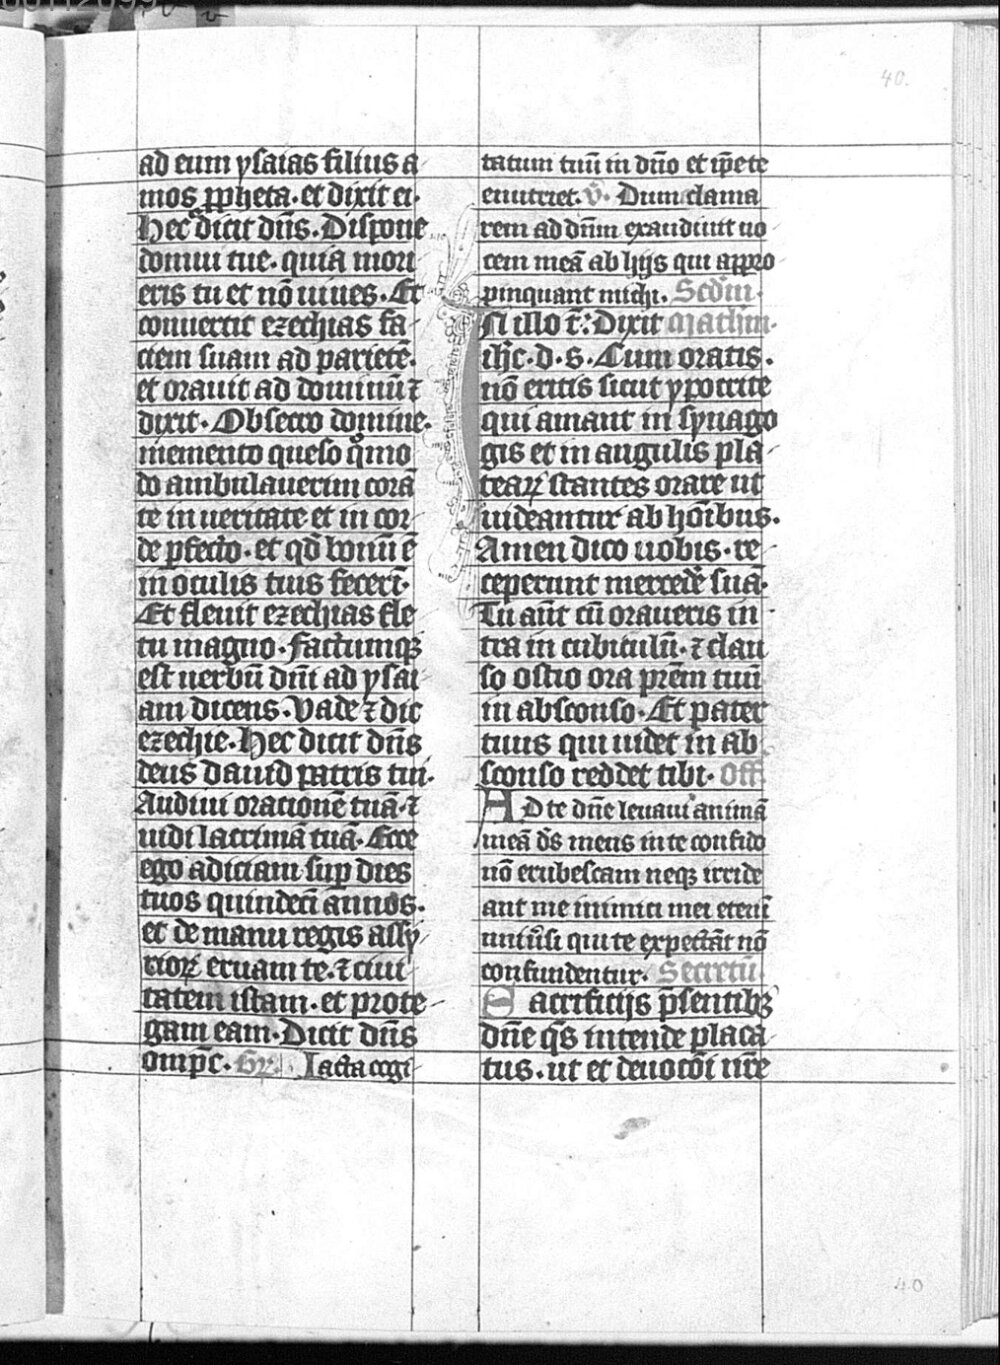 40.
ad eum ysaias filius a
mos ꝓpheta. et dixit ei.
Hec dicit dn̄s. Dispone
domui tue. quia mori
eris tu et nō uiues. Et
conuertit ezechias fa
ciem suam ad parietē.
et orauit ad dominū ⁊
dixit. Obsecro domine.
memento queso qͦmo
do ambulauerim corā
te in ueritate et in cor
de ꝑfecto. et qd̄ bonū ē
in oculis tuis fecerī.
Et fleuit ezechias fle
tu magno. Factumqꝫ
est uerbū dn̄i ad ysai
am dicens. Vade ⁊ dic
ezechie. Hec dicit dn̄s
deus dauid patris tui.
Audiui orationē tuā. ⁊
uidi lacrimā tuā. Ecce
ego adiciam suꝑ dies
tuos quindecī annos.
et de manu regis assy
rioꝝ eruam te. ⁊ ciui
tatem istam. et prote
gam eam. Dicit dn̄s
omp̄c. Gr̄. Iacta cogi
tatum tuū in dn̄o et ip̄e te
enutriet. V̄. Dum clama
rem ad dn̄m exaudiuit uo
cem meā ab hijs qui appro
pinquant michi. Scd̄m.
IN illo t̄. Dixit Mathm̄.
ih̄c. d. s. Cum oratis.
nō eritis sicut ypocrite
qui amant in synago
gis et in angulis pla
teaꝝ stantes orare ut
uideantur ab hōibus.
Amen dico uobis. re
ceperunt mercedē suā.
Tu aūt cū oraueris in
tra in cubiculū. ⁊ clau
so ostio ora pr̄em tuū
in absconso. Et pater
tuus qui uidet in ab
sconso reddet tibi. Off.
AD te dn̄e leuaui animā
meā ds̄ meus in te confido
nō erubescam neqꝫ irride
ant me inimici mei etenī
uniūsi qui te expectāt nō
confundentur. Secretū.
Sacrificijs p̄sentibꝫ
dn̄e qs̄ intende placa
tus. ut et deuocōi nr̄e
40